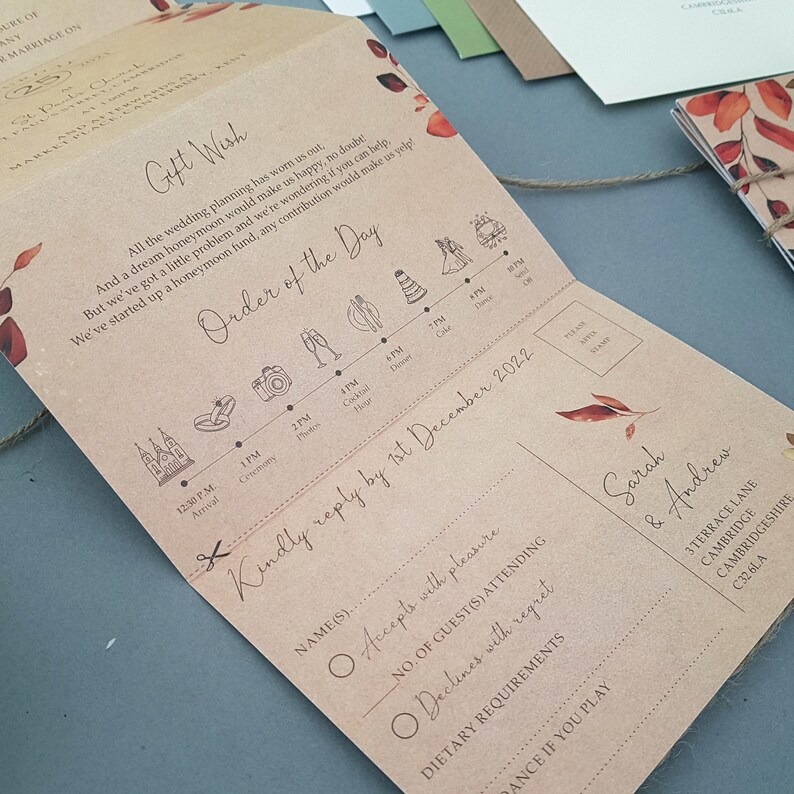 SURE OF
ANY
R MARRIAGE ON
25
2021
at
St Paul's Church
PAUL STREET, CAMBRIDGE
AT 1:30PM
AND AFTERWARDS AT
MARKET PLACE, CANTERBURY, KENT
Gift Wish
All the wedding planning has worn us out,
And a dream honeymoon would make us happy, no doubt!
But we've got a little problem and we're wondering if you can help,
We've started up a honeymoon fund, any contribution would make us yelp!
Order of the Day
12:30 P.M.
Arrival
1 PM
Ceremony
2 PM
Photos
4 PM
Cocktail
Hour
6 PM
Dinner
7 PM
Cake
8 PM
Dance
10 PM
Send
Off
Kindly reply by 1st December 2022
NAME(S)
Accepts with pleasure
NO. OF GUEST(S) ATTENDING
Declines with regret
DIETARY REQUIREMENTS
ANCE IF YOU PLAY
PLEASE
AFFIX
STAMP
Sarah
& Andrew
3 TERRACE LANE
CAMBRIDGE
CAMBRIDGESHIRE
C32 6LA
CAMBRIDGESHIRE
CT5 6LA